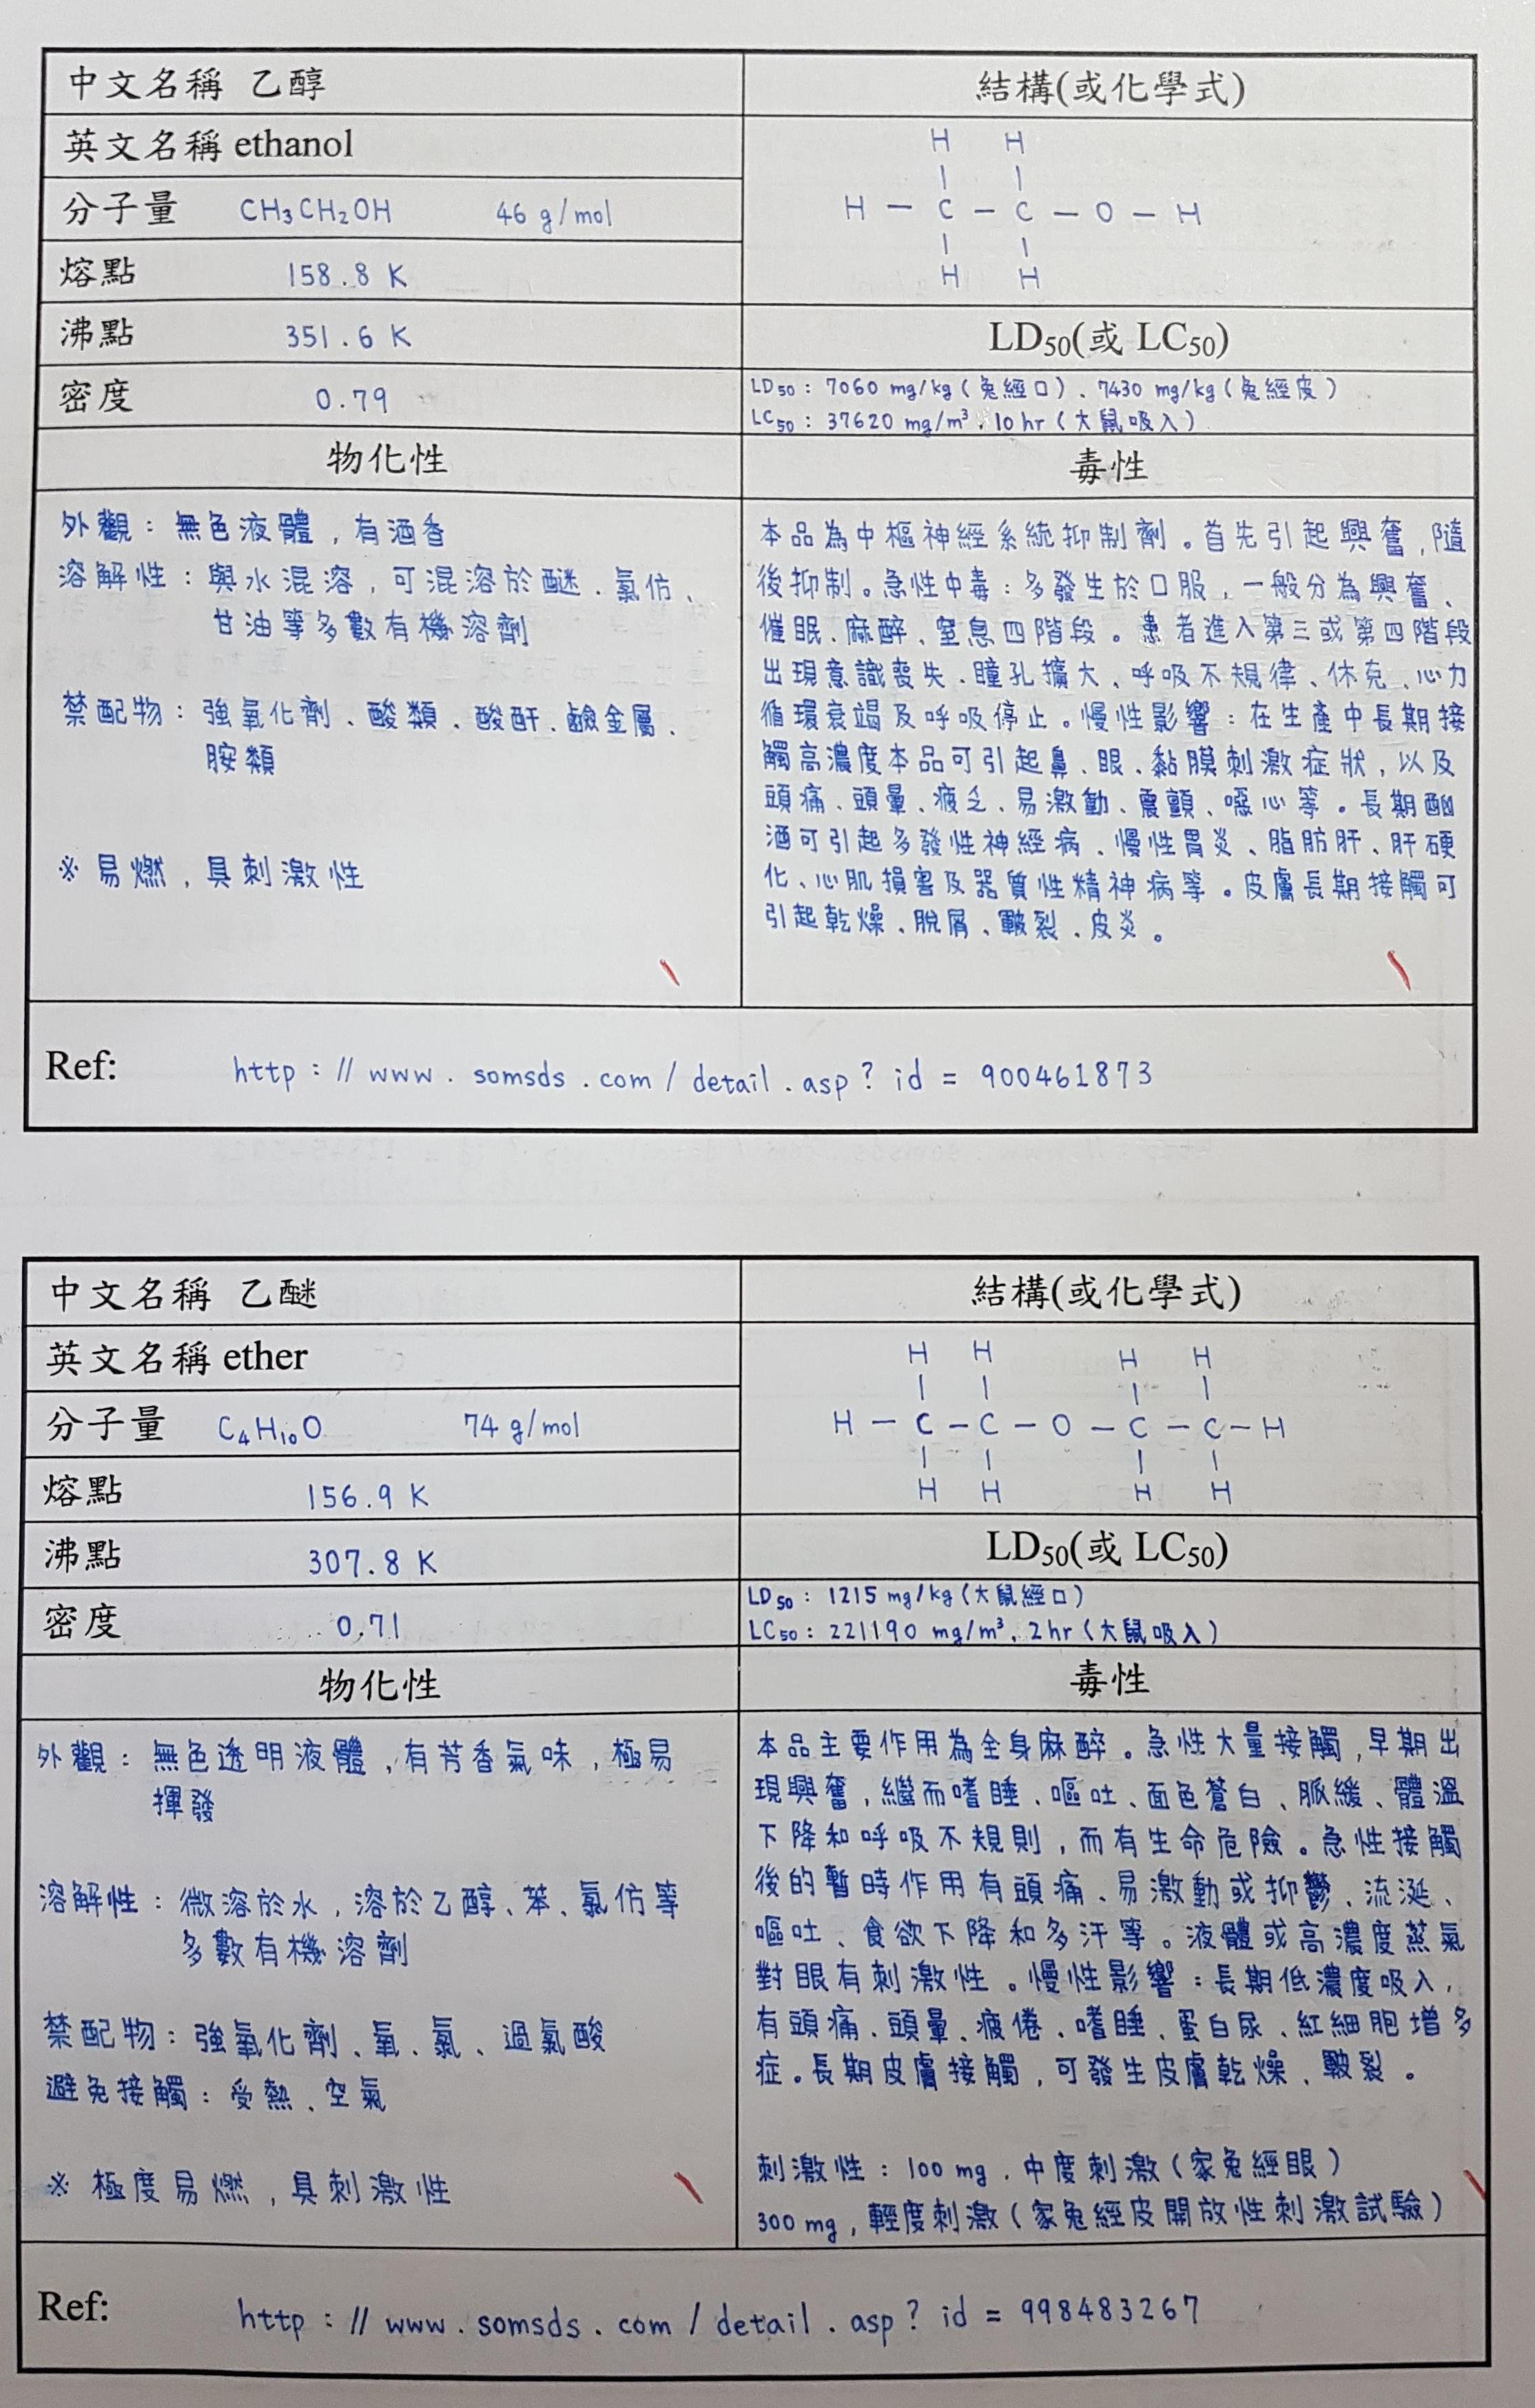 中文名稱 乙醇
結構(或化學式)
英文名稱 ethanol
分子量 CH₃CH₂OH 46 g/mol
熔點 158.8 K
沸點 351.6 K
密度 0.79
H H
| |
H — C — C — O — H
| |
H H
LD₅₀(或 LC₅₀)
LD₅₀ : 7060 mg/kg (兔經口)、7430 mg/kg (兔經皮)
LC₅₀ : 37620 mg/m³, 10 hr (大鼠吸入)
物化性
外觀 : 無色液體,有酒香
溶解性 : 與水混溶,可混溶於醚、氯仿、
甘油等多數有機溶劑
禁配物 : 強氧化劑、酸類、酸酐、鹼金屬、
胺類
※ 易燃,具刺激性
毒性
本品為中樞神經系統抑制劑。首先引起興奮,隨
後抑制。急性中毒:多發生於口服,一般分為興奮、
催眠、麻醉、窒息四階段。患者進入第三或第四階段
出現意識喪失、瞳孔擴大、呼吸不規律、休克、心力
循環衰竭及呼吸停止。慢性影響:在生產中長期接
觸高濃度本品可引起鼻、眼、黏膜刺激症狀,以及
頭痛、頭暈、疲乏、易激動、震顫、噁心等。長期酗
酒可引起多發性神經病、慢性胃炎、脂肪肝、肝硬
化、心肌損害及器質性精神病等。皮膚長期接觸可
引起乾燥、脫屑、皸裂、皮炎。
Ref: http : // www . somsds . com / detail . asp ? id = 900461873
中文名稱 乙醚
結構(或化學式)
英文名稱 ether
分子量 C₄H₁₀O 74 g/mol
熔點 156.9 K
沸點 307.8 K
密度 0.71
H H H H
| | | |
H — C — C — O — C — C — H
| | | |
H H H H
LD₅₀(或 LC₅₀)
LD₅₀ : 1215 mg/kg (大鼠經口)
LC₅₀ : 221190 mg/m³, 2 hr (大鼠吸入)
物化性
外觀 : 無色透明液體,有芳香氣味,極易
揮發
溶解性 : 微溶於水,溶於乙醇、苯、氯仿等
多數有機溶劑
禁配物 : 強氧化劑、氧、氯、過氯酸
避免接觸 : 受熱、空氣
※ 極度易燃,具刺激性
毒性
本品主要作用為全身麻醉。急性大量接觸,早期出
現興奮,繼而嗜睡、嘔吐、面色蒼白、脈緩、體溫
下降和呼吸不規則,而有生命危險。急性接觸
後的暫時作用有頭痛、易激動或抑鬱、流涎、
嘔吐、食欲下降和多汗等。液體或高濃度蒸氣
對眼有刺激性。慢性影響:長期低濃度吸入,
有頭痛、頭暈、疲倦、嗜睡、蛋白尿、紅細胞增多
症。長期皮膚接觸,可發生皮膚乾燥、皸裂。
刺激性 : 100 mg, 中度刺激 (家兔經眼)
300 mg, 輕度刺激 (家兔經皮開放性刺激試驗)
Ref: http : // www . somsds . com / detail . asp ? id = 998483267